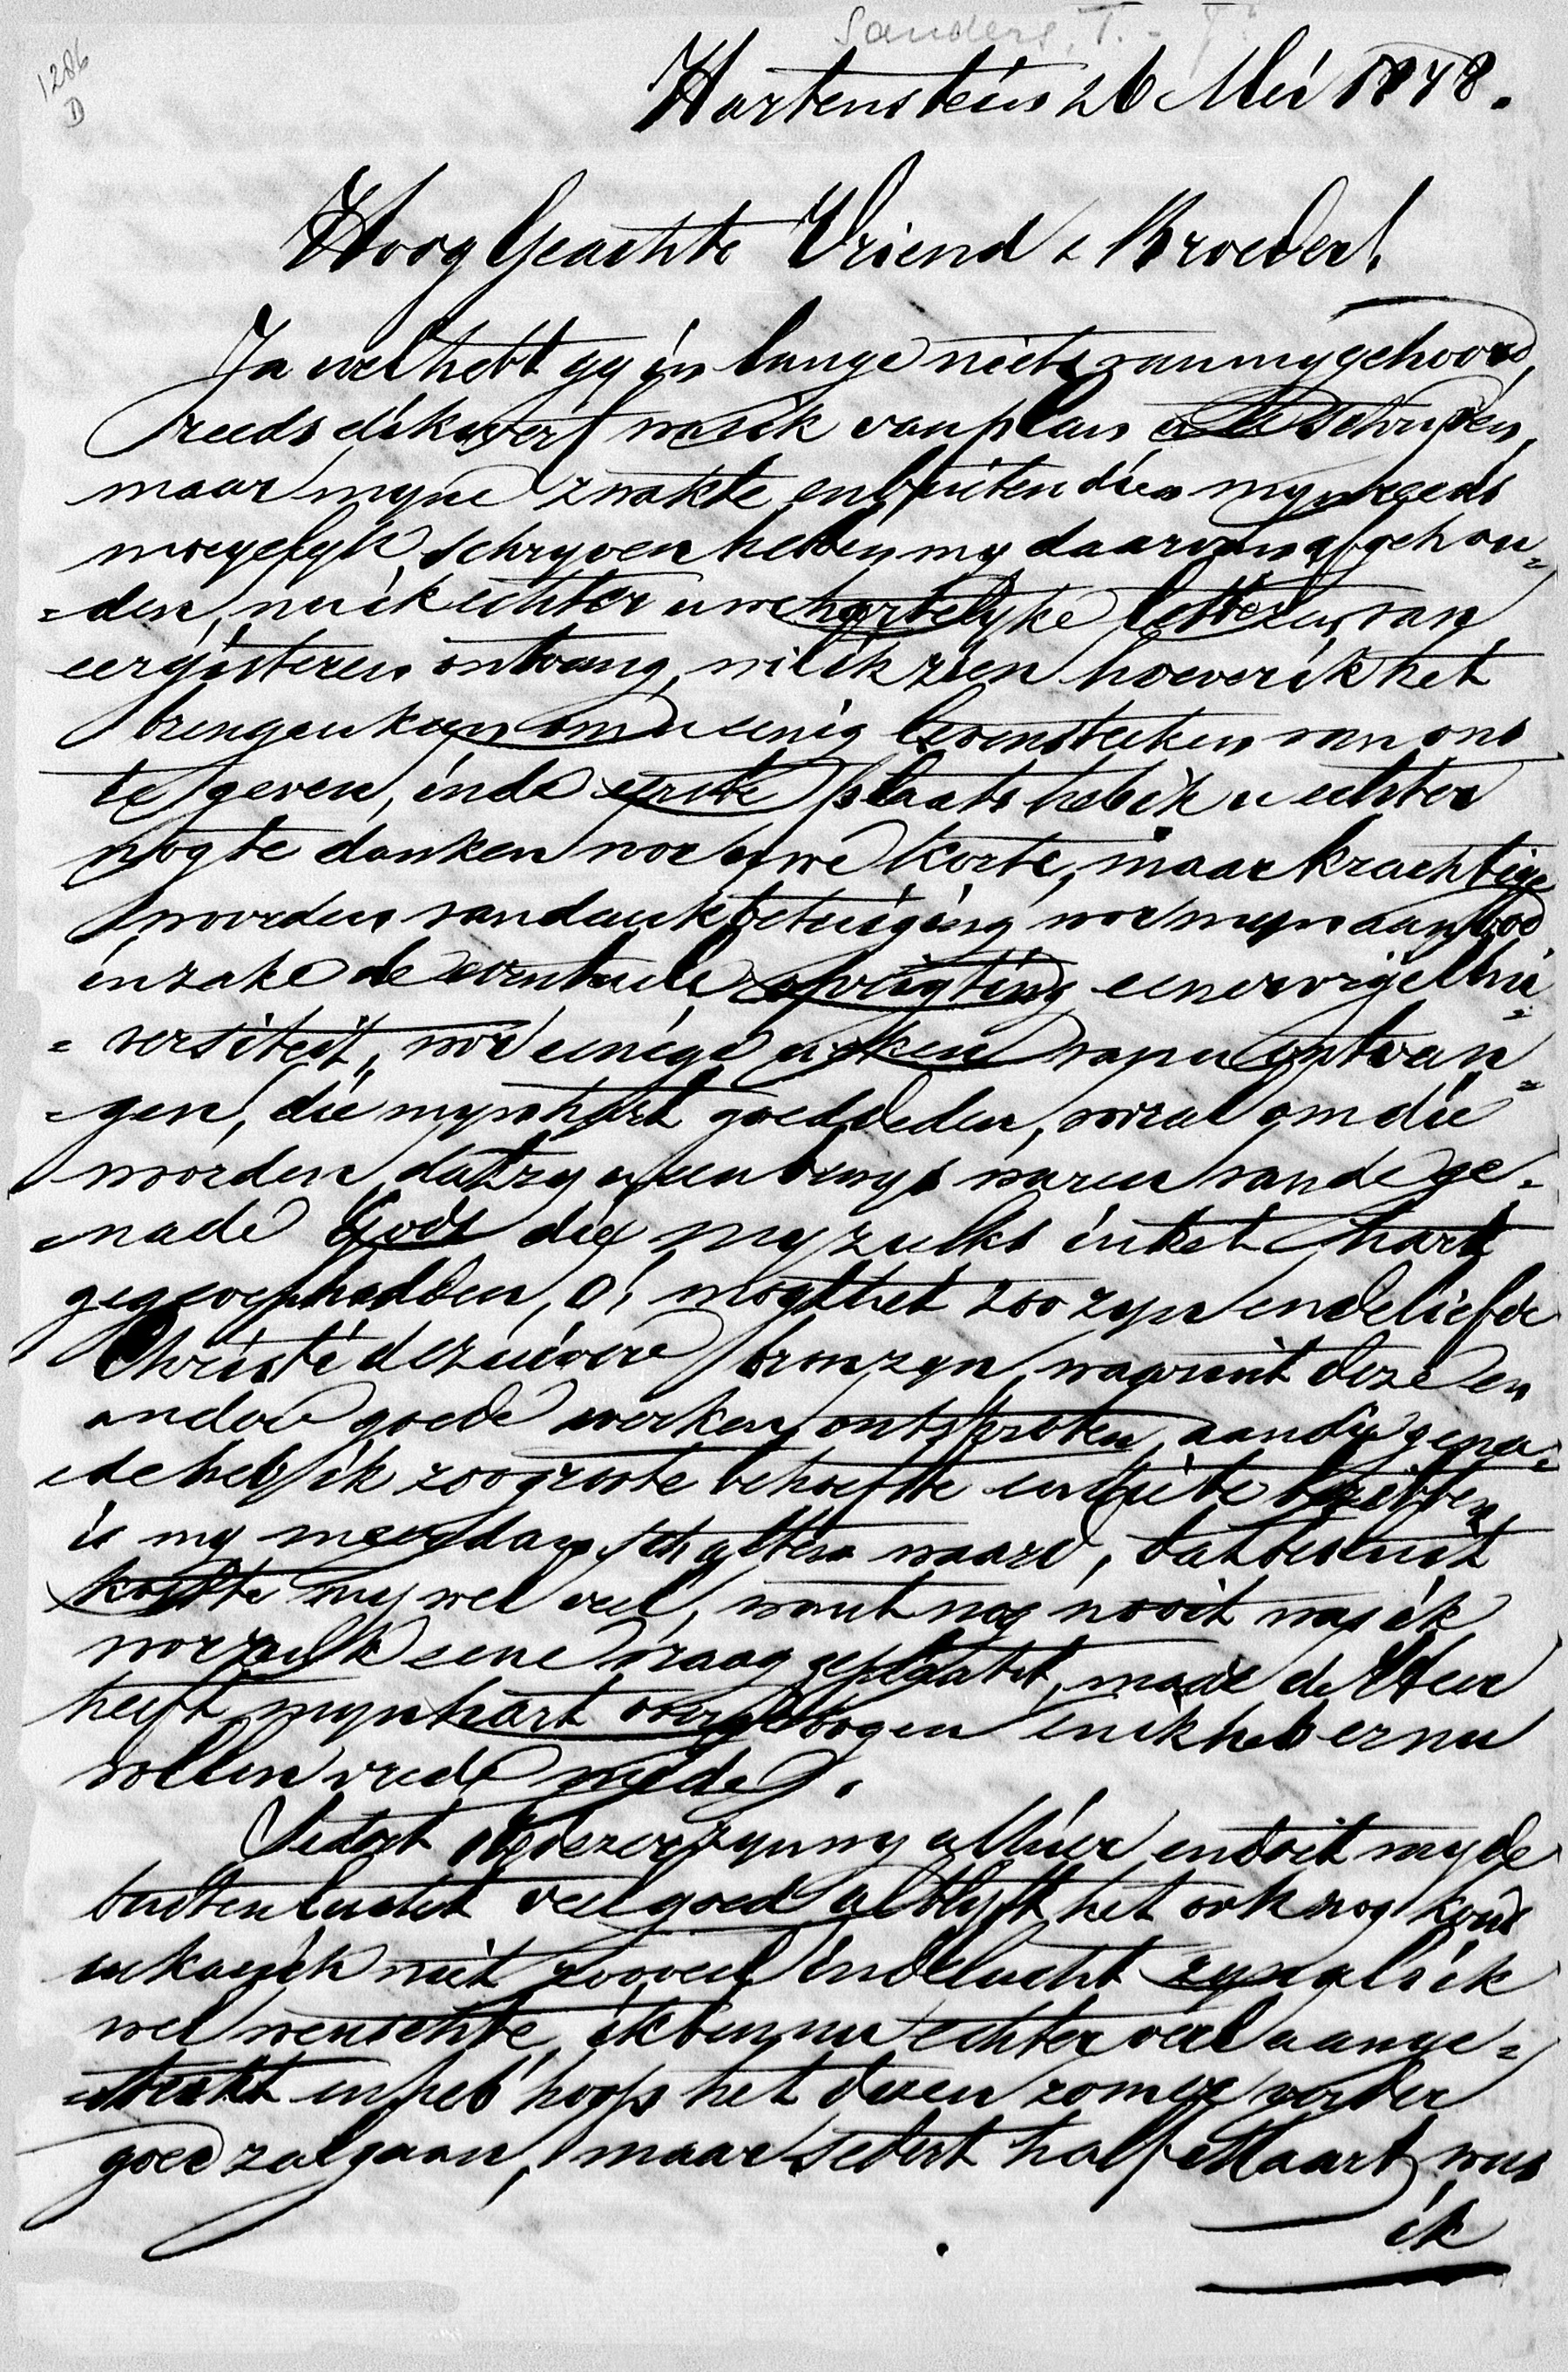 Sanders, T. - J.
1286
D
Hartenstein 26 Mei 1878.
Hoog Geachte Vriend & Broeder!
Ja wel hebt gy in lange niets van my gehoord,
reeds dikwerf was ik van plan u te schryven,
maar myne zwakte en buitendien myn reeds
moeyelyk schryven hebben my daarvan afgehou=
=den, nu ik echter uwe hartelyke letteren van
eergisteren ontvang, wil ik zien hoever ik het
brengen kan om u eenig levensteeken van ons
te geven, in de eerste plaats heb ik u echter
nog te danken voor uwe korte, maar krachtige
woorden van dankbetuiging voor myn aanbod
in zake de eventueele oprigting eener vrije Uni=
=versiteit, voor eenige weken van u ontvan=
=gen, die myn hart goed deden, vooral om die
woorden, dat zy u een bewys waren van de ge=
=nade Gods die my zulks in het hart
gegeven hadden, O! mogt het zoo zyn en de liefde
Christi de zuivere bron zyn, waaruit deze en
andere goede werken ontsproten, aan die gena=
=de heb ik zoo groote behoefte en die te bezitten
is my meer dan schatten waard, dat besluit
kostte my wel veel, want nog nooit was ik
voor zulk eene vraag geplaatst, maar de Heer
heeft myn hart overgebogen en ik heb er nu
vollen vrede mede.
Sedert zyn wy alhier en doet my de
buitenlucht veel goed al blyft het ook nog koud
en kan ik niet zooveel in de lucht zyn als ik
wel wenschte, ik ben nu echter veel aange=
=sterkt en heb hoop het dezen zomer verder
goed zal gaan, maar sedert half Maart was
ik